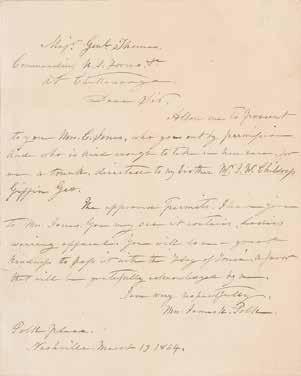 Majr. Genl. Thomas.
Commanding U. S. Forces, &c
at Chattanooga
Dear Sir.
Allow me to present
to you Mrs. C. Jones, who goes out by permission
and who is kind enough to take in her care, for
me, a trunk, directed to my brother
Griffin Geo.
The approval Permit, I have given
to Mrs. Jones. You may see it contains, ladies
wearing apparel. You will do me a great
kindness to pass it with the Lady of Jones. A favor
that will be gratefully acknowledged by me.
I am very respectfully,
Mrs. James K. Polk.
Polk place.
Nashville March 19 1864.